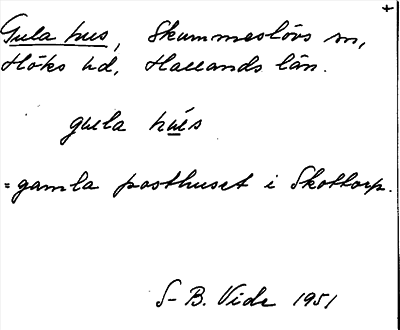 Gula hus, Skummeslövs sn,
Höks hd, Hallands län.
gula hús
= gamla posthuset i Skottorp.
S-B. Vide 1951